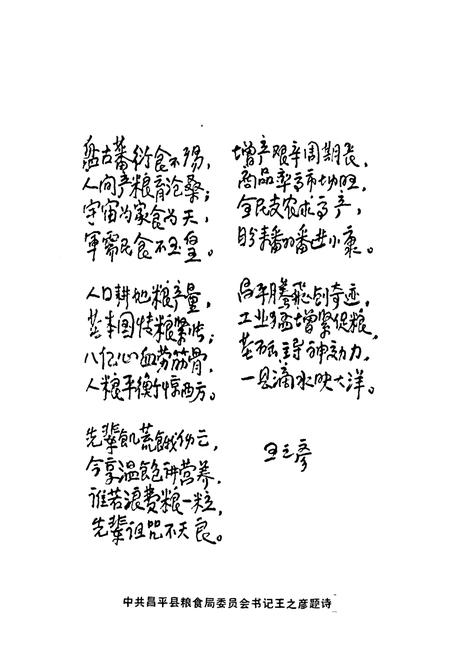 盘古蕃衍食不易，
人间产粮育沧桑；
宇宙为家食为天，
军需民食不丑皇。
人口耕地粮产量，
基本国情粮紧张；
八亿心血劳筋骨，
人粮平衡惊西方。
先辈飢荒饿
今享温飽讲营养，
谁若浪费粮一粒，
先辈诅咒不天良。
增产艰辛周期长，
商品率高市场旺，
全民支农求高产，
盼耕番番进小康。
昌平腾飛创奇迹，
工业增紧促粮，
神动力，
一县滴水映大洋。
王之彦
中共昌平县粮食局委员会书记王之彦题诗